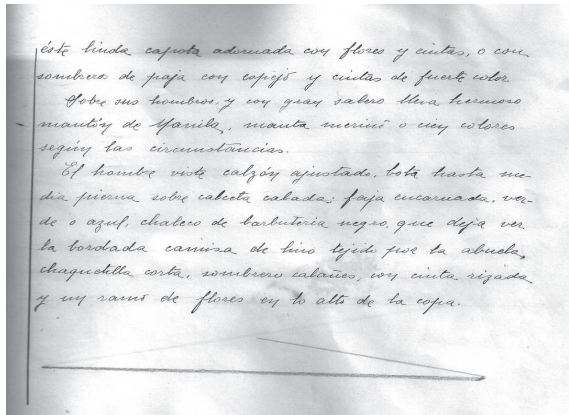 éste linda capota adornada con flores y cintas, o con
sombrero de paja con espejo y cintas de fuerte color.
Sobre sus hombros, y con gran salero lleva hermoso
mantón de Manila, manta merino o cien colores
según las circunstancias.
El hombre viste calzón ajustado, bota hasta me-
dia pierna sobre calceta calada; faja encarnada, ver-
de o azul, chaleco de negro, que deja ver
la bordada camisa de lino tejido por la abuela,
chaquetilla corta, sombrero calañés, con cinta rizada
y un ramo de flores en lo alto de la copa.